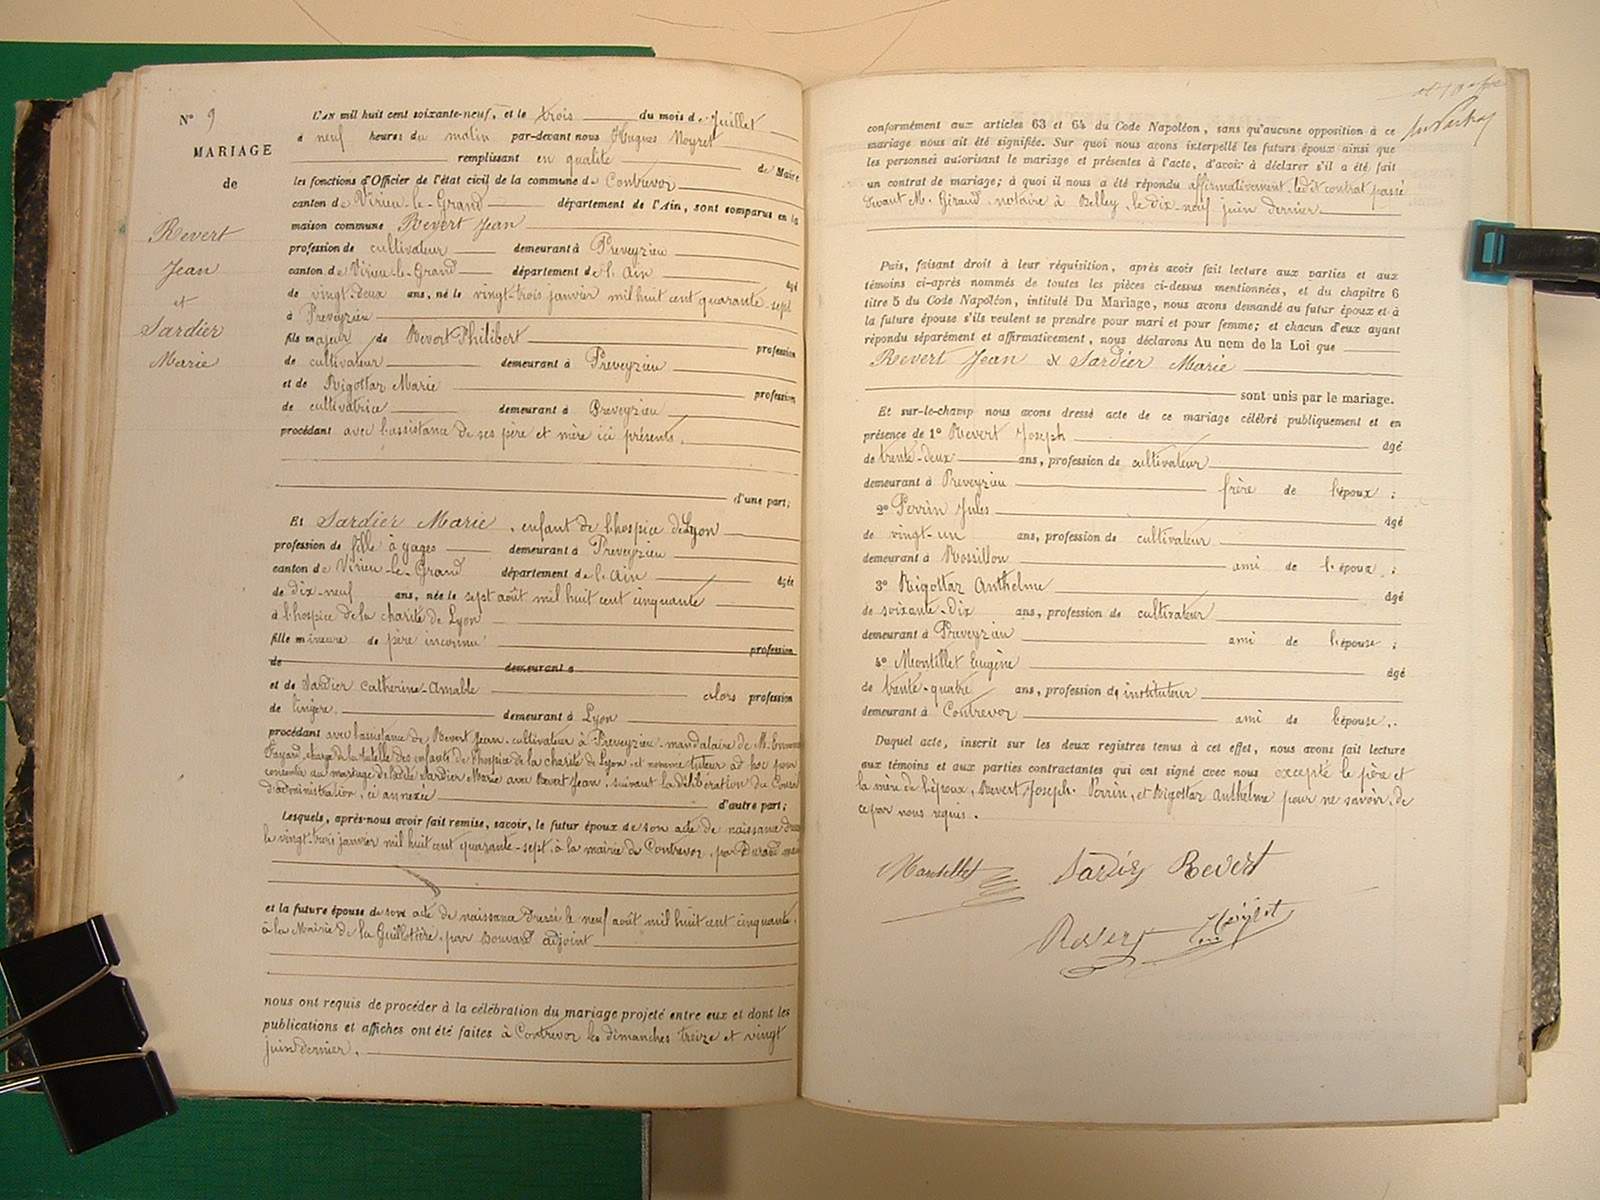 N° 9
MARIAGE
de
Revert
Jean
et
Sardier
Marie
L'AN mil huit cent soixante-neuf, et le trois du mois de Juillet
à neuf heures du matin par-devant nous Hugues Noyret
remplissant en qualité de Maire
les fonctions d'Officier de l'état civil de la commune de Contrevoz
canton de Virieu-le-Grand département de l'Ain, sont comparus en la
maison commune Revert Jean
profession de cultivateur demeurant à Preveyzieu
canton de Virieu-le-Grand département de l'Ain âgé
de vingt-deux ans, né le vingt-trois janvier mil huit cent quarante-sept
à Preveyzieu
fils majeur de Revert Philibert profession
de cultivateur demeurant à Preveyzieu
et de Rigottaz Marie profession
de cultivatrice demeurant à Preveyzieu
procédant avec l'assistance de ses père et mère ici présents.
d'une part;
Et Sardier Marie, enfant de l'hospice de Lyon
profession de fille à gages demeurant à Preveyzieu
canton de Virieu-le-Grand département de l'Ain âgée
de dix-neuf ans, née le sept août mil huit cent cinquante
à l'hospice de la charité de Lyon
fille mineure de père inconnu profession
de demeurant à
et de Sardier Catherine-Amable alors profession
de lingère demeurant à Lyon
procédant avec l'assistance de Revert Jean, cultivateur à Preveyzieu, mandataire de M.
Fayard, chargé de la tutelle des enfants de l'hospice de la charité de Lyon, et nommé tuteur ad hoc pour
consentir au mariage de ladite Sardier Marie avec Revert Jean, suivant la délibération du Conseil
d'administration, ci annexée d'autre part;
Lesquels, après nous avoir fait remise, savoir, le futur époux de son acte de naissance
le vingt-trois janvier mil huit cent quarante-sept, à la mairie de Contrevoz, par Durand
et la future épouse de son acte de naissance dressé le neuf août mil huit cent cinquante,
à la Mairie de la Guillotière, par Bouvard adjoint
nous ont requis de procéder à la célébration du mariage projeté entre eux et dont les
publications et affiches ont été faites à Contrevoz les dimanches treize et vingt
juin dernier.
conformément aux articles 63 et 64 du Code Napoléon, sans qu'aucune opposition à ce
mariage nous ait été signifiée. Sur quoi nous avons interpellé les futurs époux ainsi que
les personnes autorisant le mariage et présentes à l'acte, d'avoir à déclarer s'il a été fait
un contrat de mariage; à quoi il nous a été répondu affirmativement, ledit contrat passé
devant M. Giraud, notaire à Belley, le dix-neuf juin dernier
Puis, faisant droit à leur réquisition, après avoir fait lecture aux parties et aux
témoins ci-après nommés de toutes les pièces ci-dessus mentionnées, et du chapitre 6
titre 5 du Code Napoléon, intitulé Du Mariage, nous avons demandé au futur époux et à
la future épouse s'ils veulent se prendre pour mari et pour femme; et chacun d'eux ayant
répondu séparément et affirmativement, nous déclarons Au nom de la Loi que
Revert Jean & Sardier Marie
sont unis par le mariage.
Et sur-le-champ nous avons dressé acte de ce mariage célébré publiquement et en
présence de 1° Revert Joseph âgé
de trente-deux ans, profession de cultivateur
demeurant à Preveyzieu frère de l'époux ;
2° Perrin Jules âgé
de vingt-un ans, profession de cultivateur
demeurant à Rossillon ami de l'époux ;
3° Rigottaz Anthelme âgé
de soixante-dix ans, profession de cultivateur
demeurant à Preveyzieu ami de l'épouse ;
4° Montillet Eugène âgé
de trente-quatre ans, profession de instituteur
demeurant à Contrevoz ami de l'épouse.
Duquel acte, inscrit sur les deux registres tenus à cet effet, nous avons fait lecture
aux témoins et aux parties contractantes qui ont signé avec nous excepté le père et
la mère de l'époux, Revert Joseph, Perrin, et Rigottaz Anthelme pour ne savoir, de
ce par nous requis.
Montillet Sardier Revert
Revert Noyret